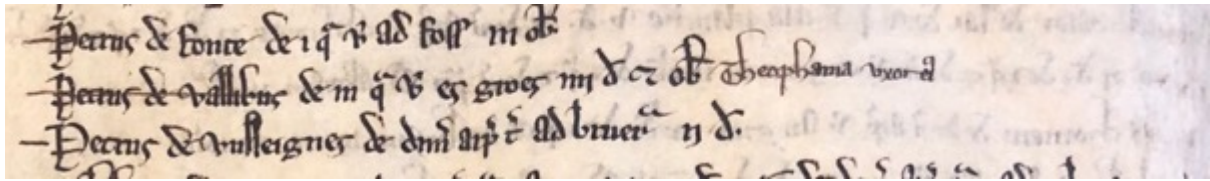 Petrus de fonte de i q̄ v̄ ad foss̄ iii ob̄
Petrus de vallibus de iii q̄ v̄ es groes iiii d̄ et ob̄ Theophania uxor
Petrus de de dim̄ arp̄ t̄ ad brueraᷓ ii d̄.